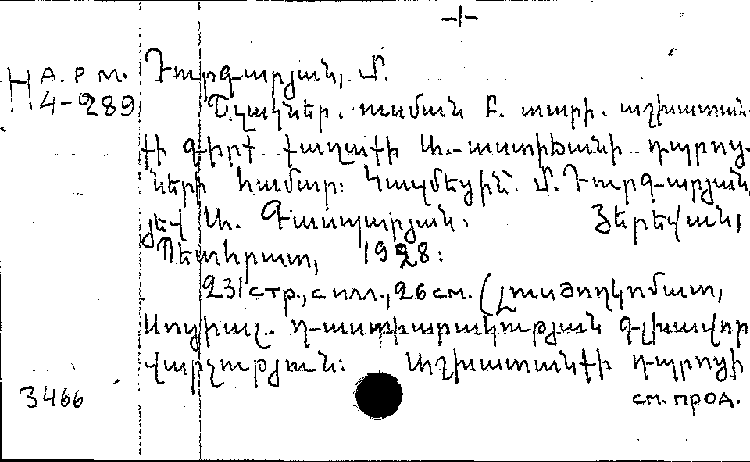 -1-
А.Р.М. Դուրգարյան, Մ.
Н 4-289
Շկակներ. ուսման Բ. տարի. աշխատան-
քի գիրք քաղաքի Ա.-աստիճանի դպրոց-
ների համար: Կազմեցին՝ Մ. Դուրգարյան,
յեվ Ա. Գասպարյան: Յերեվան,
Պետհրատ, 1928:
231 стр., с илл., 26 см. (Լուսժողկոմատ,
Սոցիալ. դաստիարակության գլխավոր
վարչություն: Աշխատանքի դպրոցի
3466 см. прод.